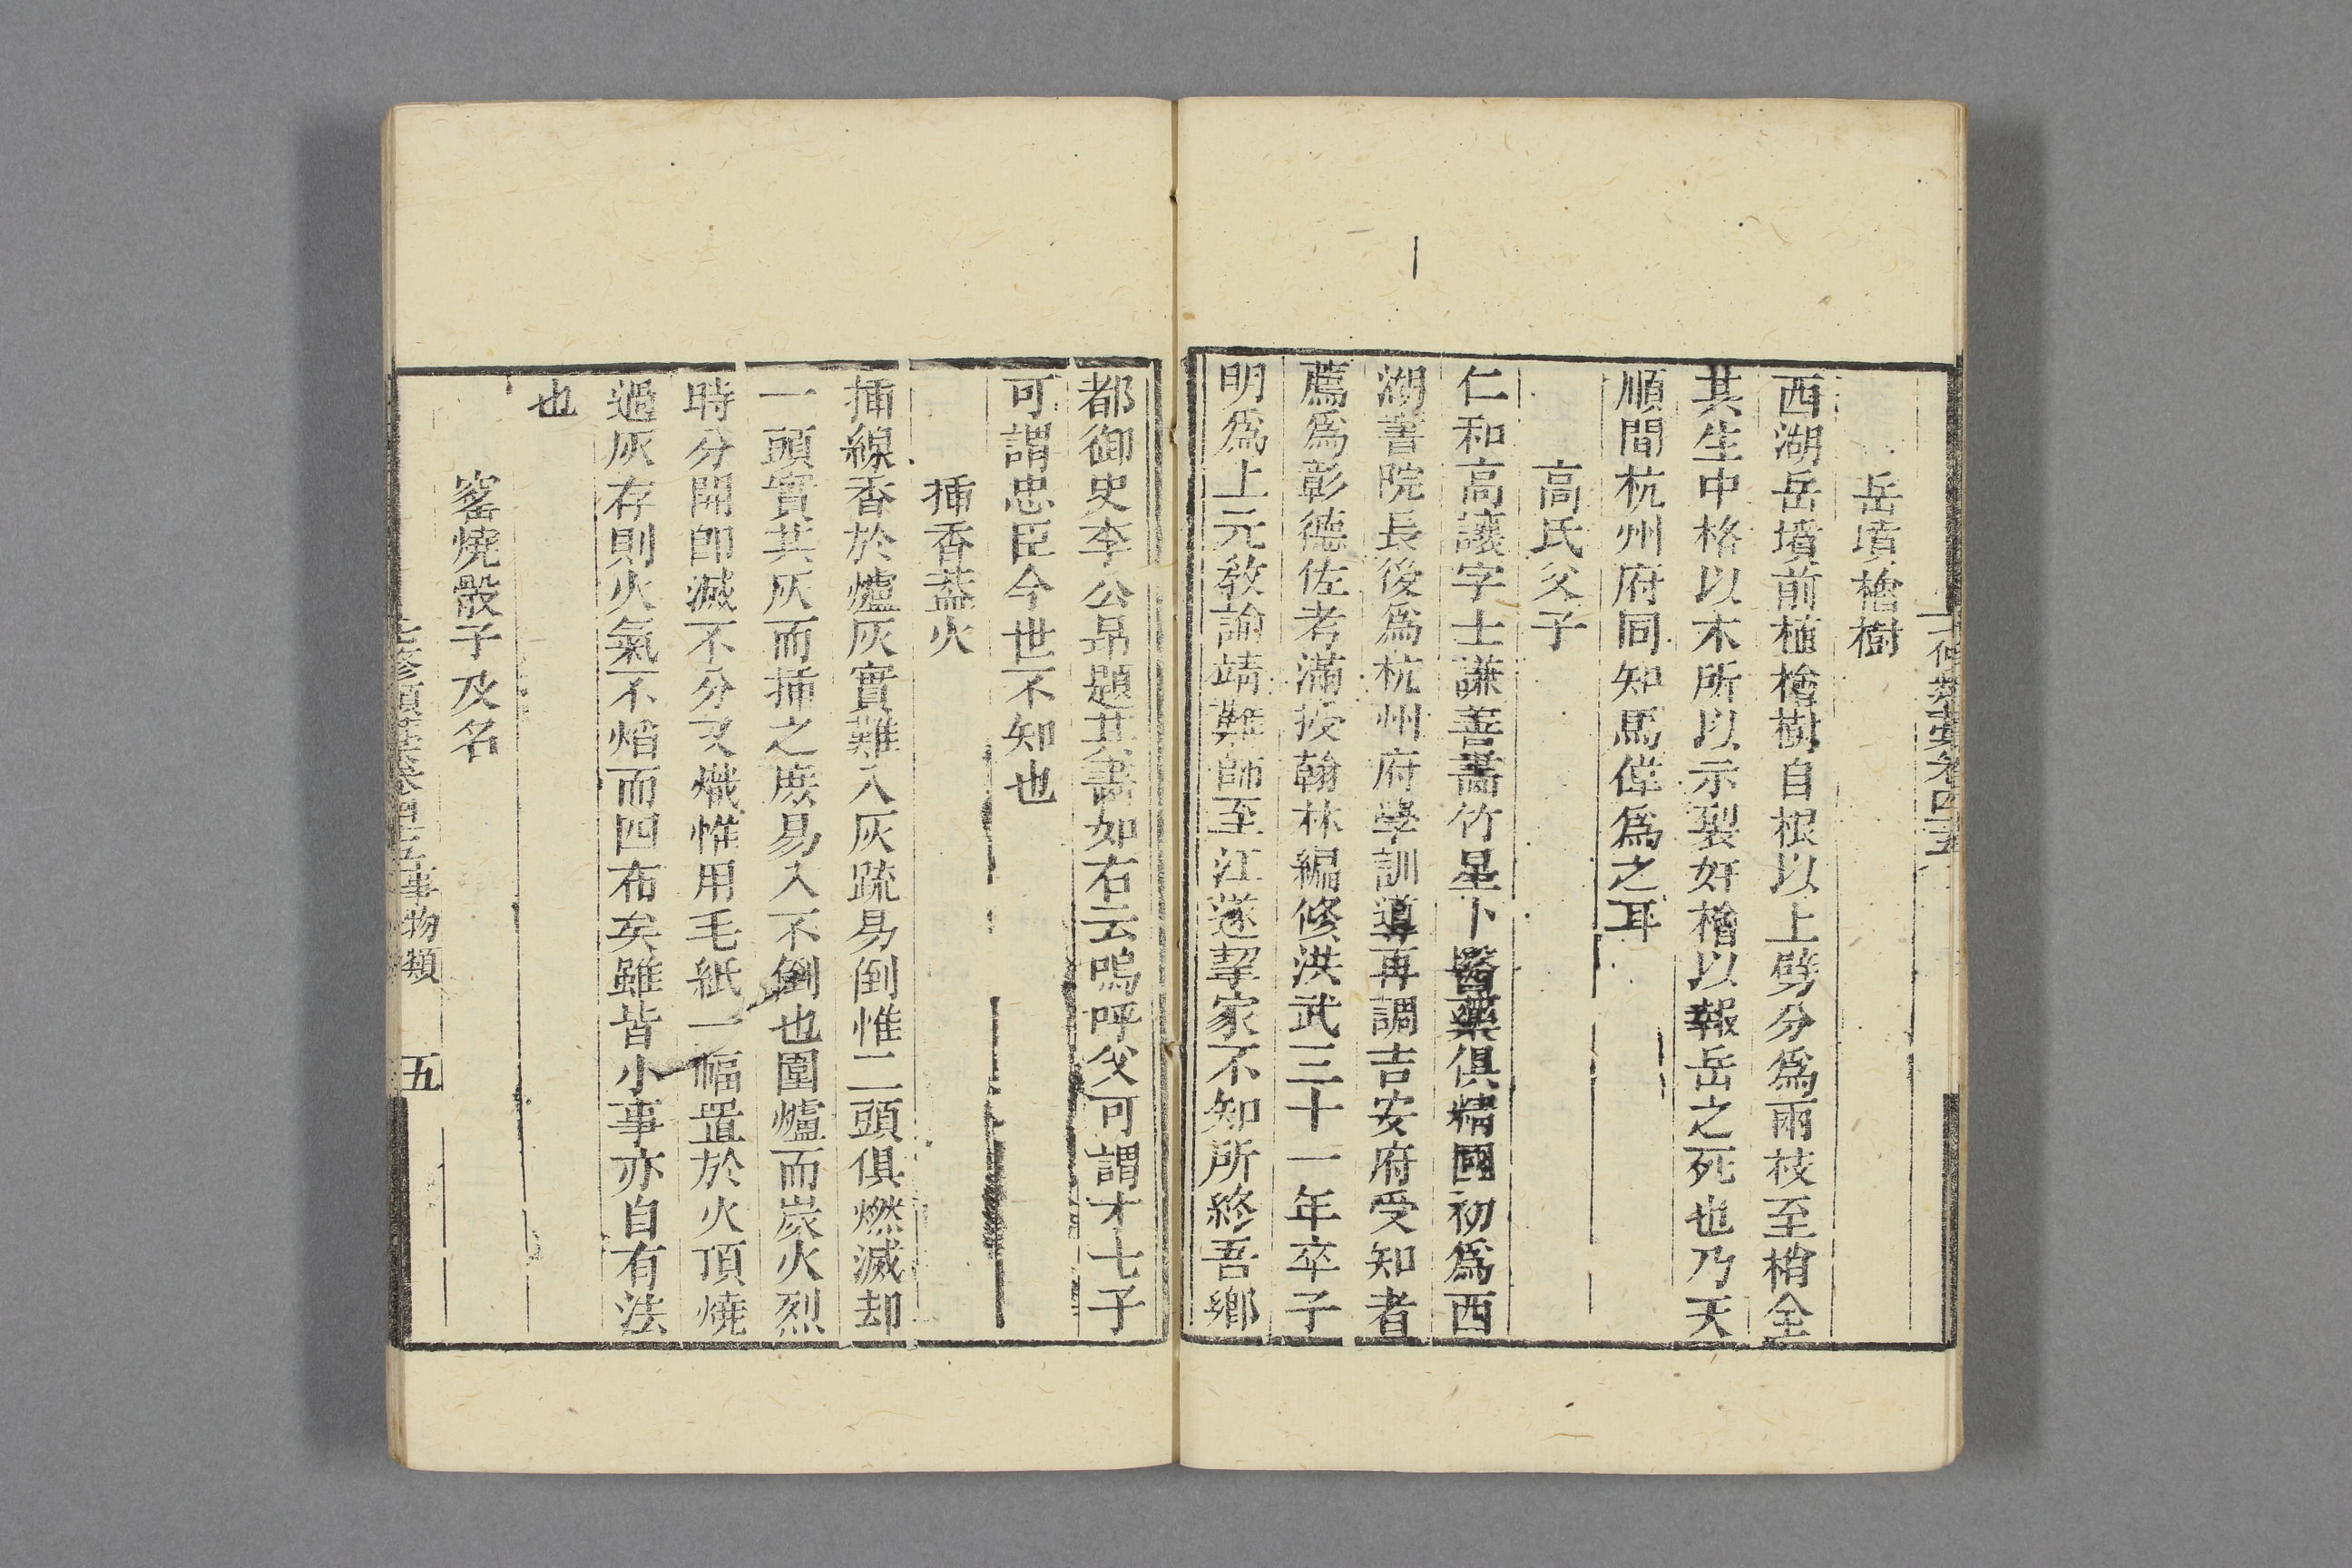 岳墳檜樹
西湖岳墳前植檜樹自根以上劈分爲兩枝至梢全
其生中格以木所以示裂奸檜以報岳之死也乃天
順間杭州府同知馬偉爲之耳
高氏父子
仁和高讓字士謙善畵竹星卜醫藥俱精國初爲西
湖書院長後爲杭州府學訓導再調吉安府受知者
薦爲彰德佐考滿授翰林編修洪武三十一年卒子
明爲上元教諭靖難師至江遂挈家不知所終吾鄉
都御史李公昻題其畵如右云嗚呼父可謂才士子
可謂忠臣今世不知也
揷香葢火
揷線香於爐灰實難入灰疏易倒惟二頭俱燃滅却
一頭實其灰而揷之庶易入不倒也圍爐而炭火烈
時分開卽滅不分又熾惟用毛紙一幅置於火頂燒
過灰存則火氣不熖而四布矣雖皆小事亦自有法
也
窰燒骰子及名
七修類藁卷四十五事物類
五